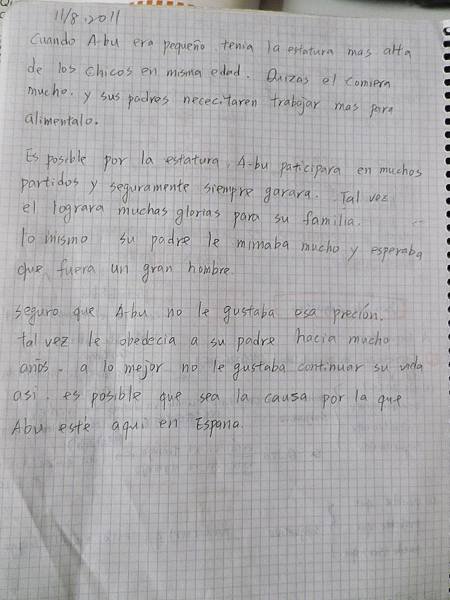 11/8.2011
Cuando A-bu era pequeño tenia la estatura mas alta
de los chicos en misma edad. Quizas el comiera
mucho. y sus padres nececitaren trabajar mas para
alimentalo.
Es posible por la estatura, A-bu paticipara en muchos
partidos y seguramente siempre garara. Tal vez
el lograra muchas glorias para su familia.
lo mismo su padre le mimaba mucho y esperaba
que fuera un gran hombre.
seguro que A-bu no le gustaba osa preción.
tal vez le obedecia a su padre hacia mucho
años. a lo mejor no le gustaba continuar su vida
asi. es posible que sea la causa por la que
Abu esté aqui en Espana.